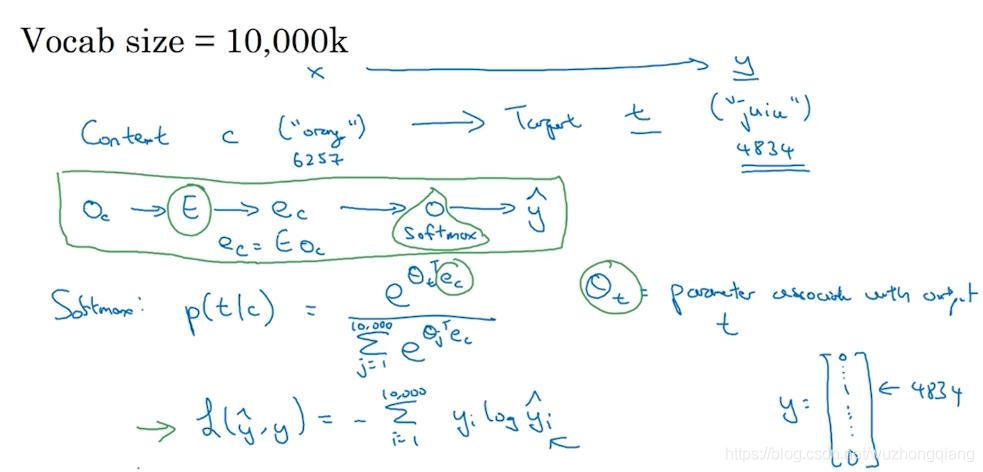 Vocab size = 10,000k
x → y
Content c ("orange") → Target t ("juice")
6257 4834
O_c → E → e_c → o → ŷ
Softmax
e_c = E O_c
Softmax: p(t|c) = e^{θ_t^T e_c} / Σ_{j=1}^{10,000} e^{θ_j^T e_c}
θ_t = parameter associate with output t
→ ℒ(ŷ, y) = - Σ_{i=1}^{10,000} y_i log ŷ_i ←
y = [0 ⋮ 1 ⋮ 0] ← 4834
https://blog.csdn.net/wuzhongqiang